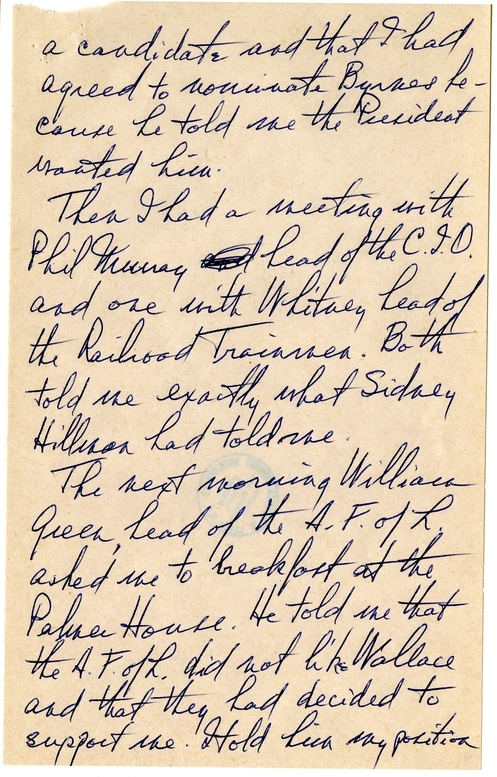 a candidate and that I had
agreed to nominate Byrnes be-
cause he told me the President
wanted him.
Then I had a meeting with
Phil Murray head of the C.I.O.
and one with Whitney head of
the Railroad Trainmen. Both
told me exactly what Sidney
Hillman had told me.
The next morning William
Green, head of the A.F. of L.
asked me to breakfast at the
Palmer House. He told me that
the A.F. of L. did not like Wallace
and that they had decided to
support me. I told him my position